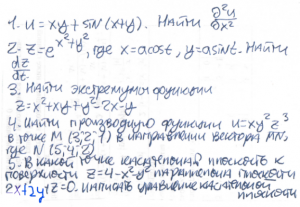 1. u = xy + sin(x+y). Найти ∂²u/∂x²
2. z = e^(x²+y²), где x = a cost, y = a sint. Найти
dz/dt
3. Найти экстремумы функции
z = x² + xy + y² - 2x - y
4. Найти производную функции u = xy²z³
в точке M (3,2,1) в направлении вектора MN,
где N (5,4,2)
5. В какой точке касательная плоскость к
поверхности z = 4 - x² - y² параллельна плоскости
2x+2y+z=0. Написать уравнение касательной
плоскости